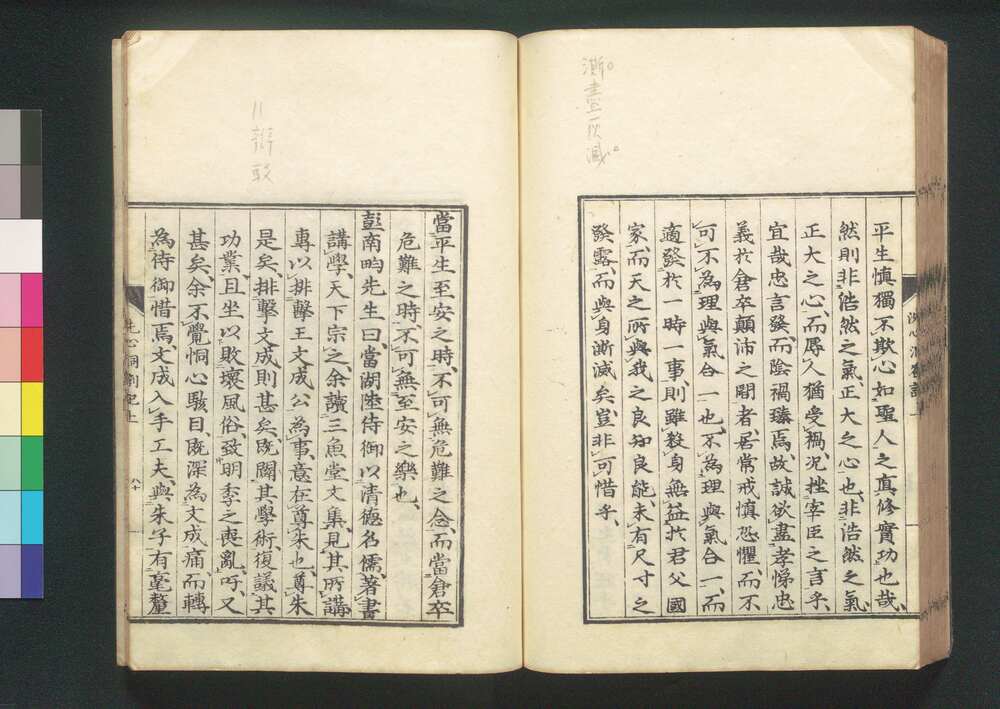 平生慎獨不欺心如聖人之真修實功也哉、
然則非浩然之氣、正大之心也、非浩然之氣、
正大之心、而辱人猶受禍、況挫宰臣之言乎、
宜哉忠言發、而陰禍臻焉、故誠欲盡孝悌忠
義於倉卒顛沛之間者、居常戒慎恐懼、而不
可不為理與氣合一也、不為理與氣合一、而
適發於一時一事、則雖殺身無益於君父國
家、而天之所與我之良知良能、未有尺寸之
發露、而與身澌滅矣、豈非可惜乎、
當平生至安之時、不可無危難之念、而當倉卒
危難之時、不可無至安之樂也、
彭南畇先生曰、當湖陸侍御以清德名儒、著書
講學、天下宗之、余讀三魚堂文集、見其所講
專以排擊王文成公為事、意在尊朱也、尊朱
是矣、排擊文成則甚矣、既闢其學術、復議其
功業、且坐以敗壞風俗、致明季之喪亂、吁、又
甚矣、余不覺恫心駭目、既深為文成痛、而轉
為侍御惜焉、文成入手工夫、與朱子有毫釐
洗心洞劄記上
八十